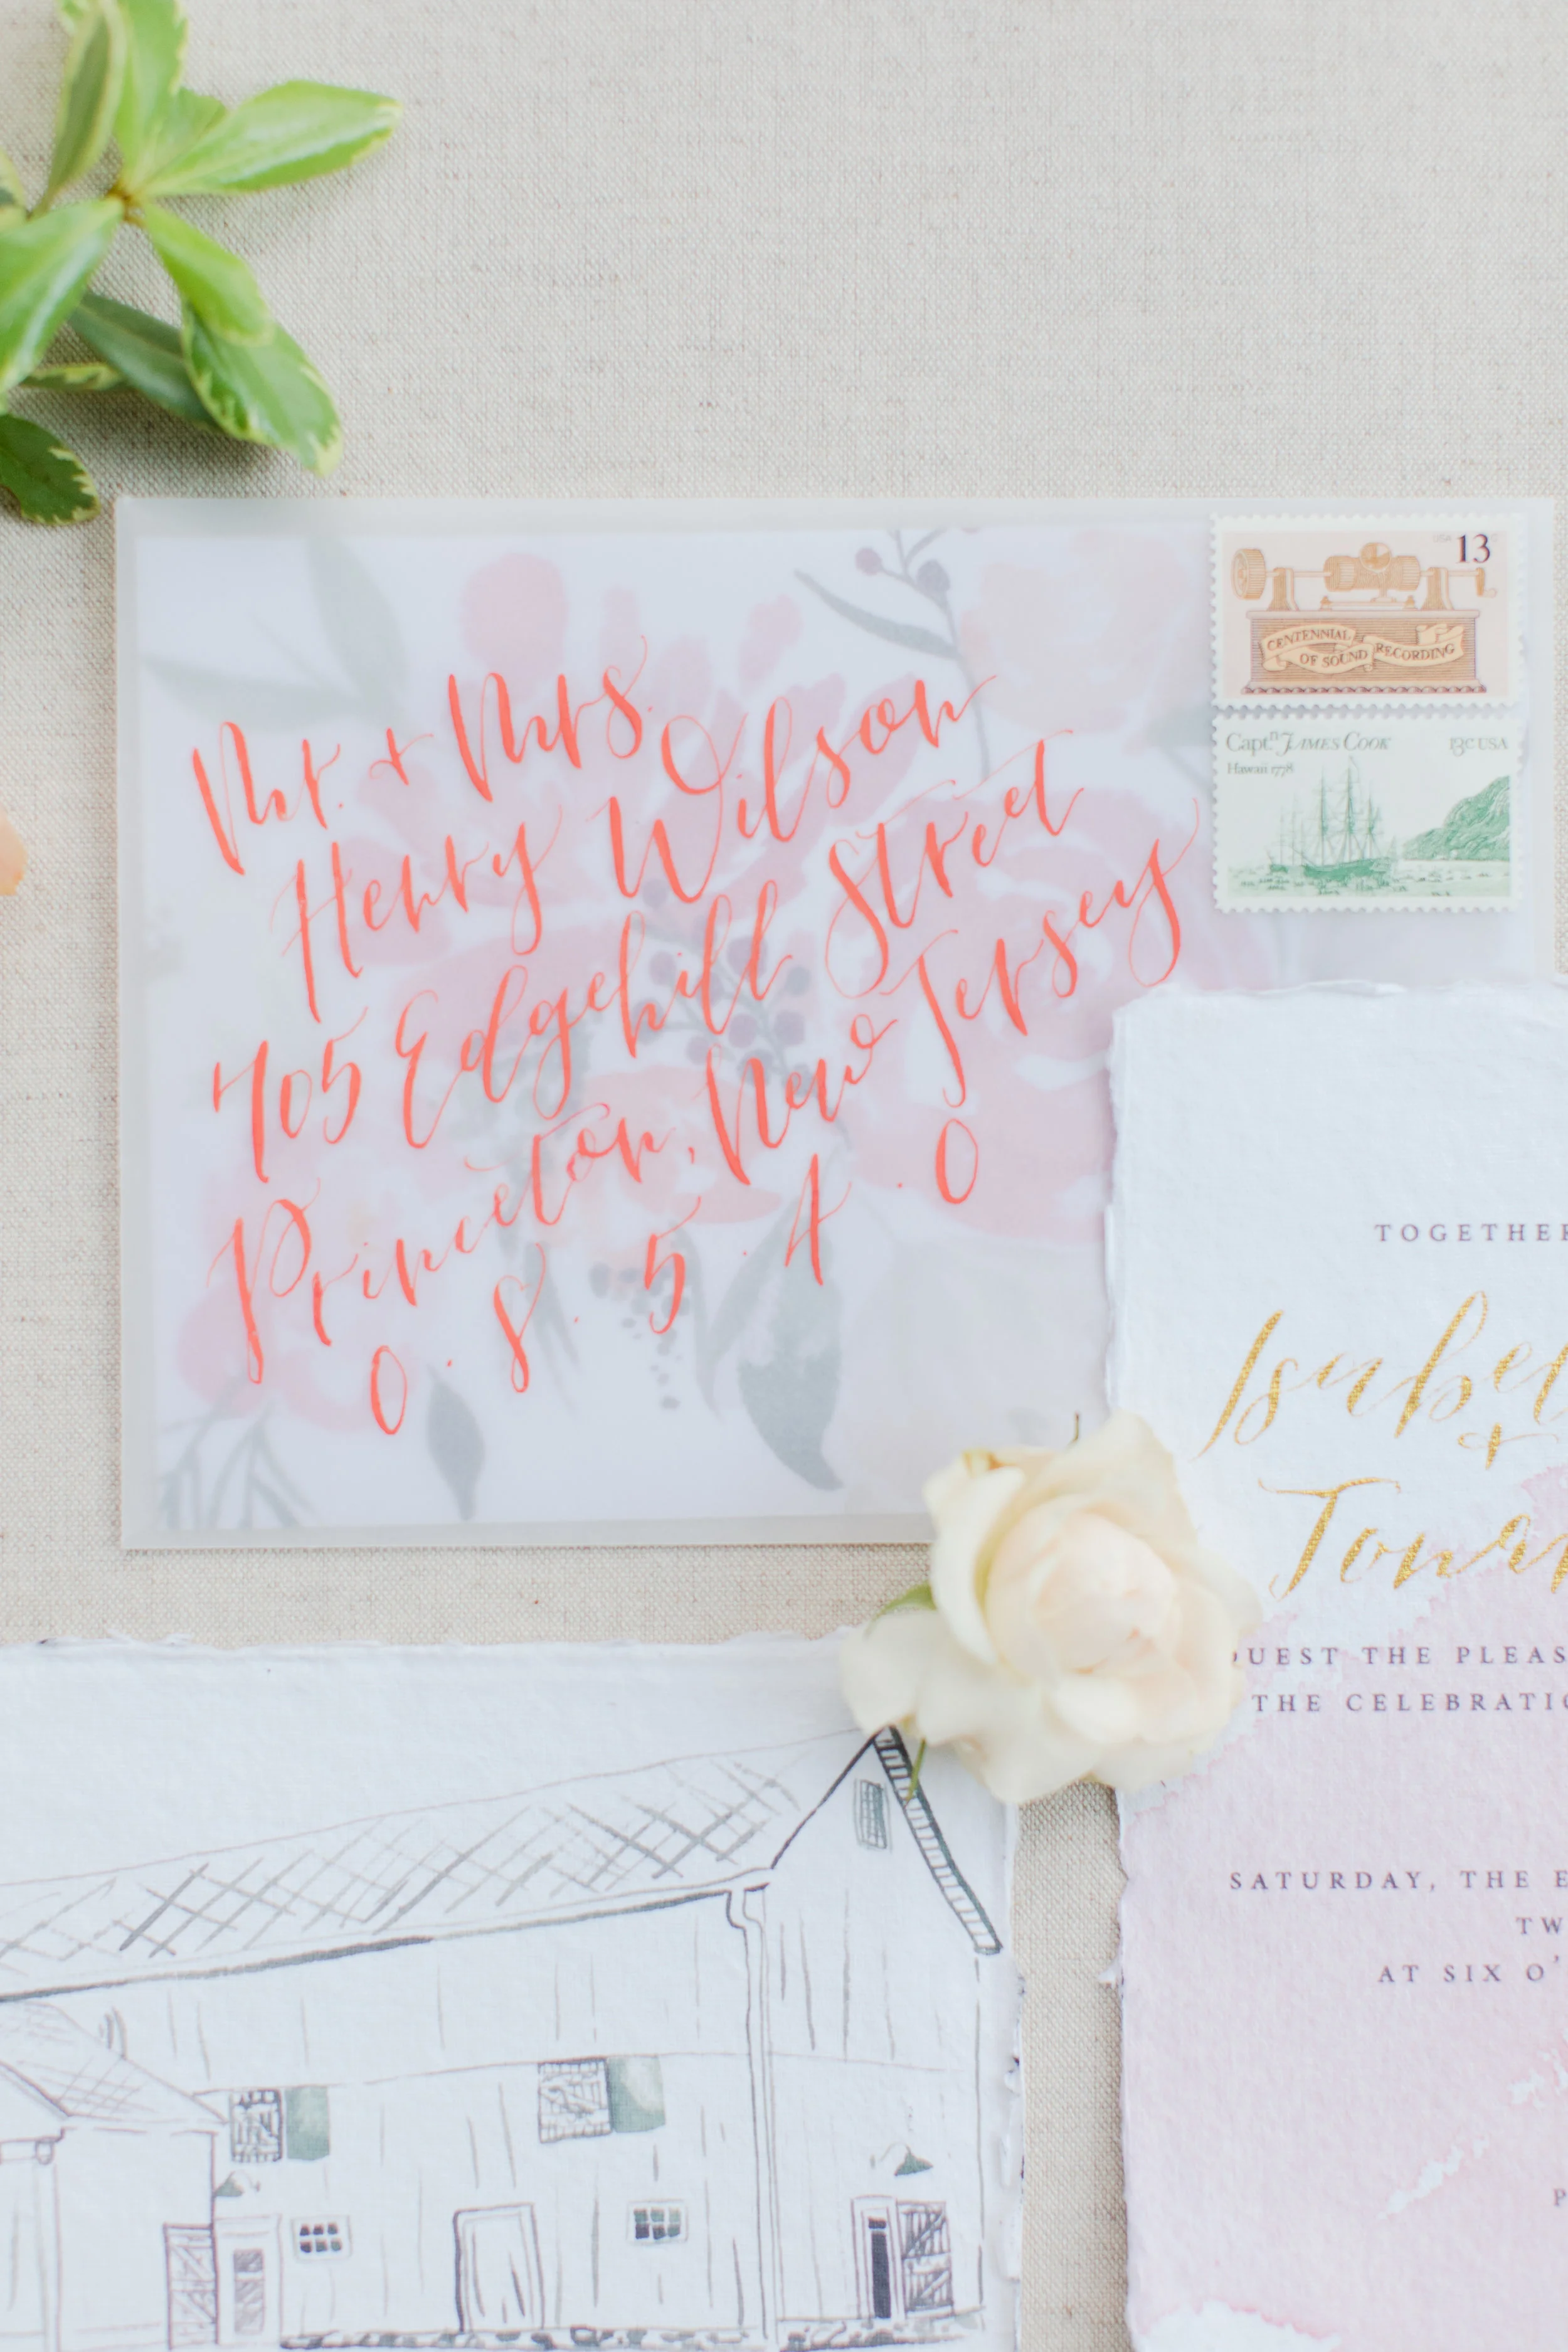 USA 13
CENTENNIAL
OF SOUND RECORDING
Captn JAMES COOK 13c USA
Hawaii 1778
Mr. + Mrs.
Henry Wilson
705 Edgehill Street
Princeton, New Jersey
0 . 8 . 5 . 4 . 0
TOGETHER
Isabel
+
QUEST THE PLEAS
THE CELEBRATIO
SATURDAY, THE E
TW
AT SIX O'
P